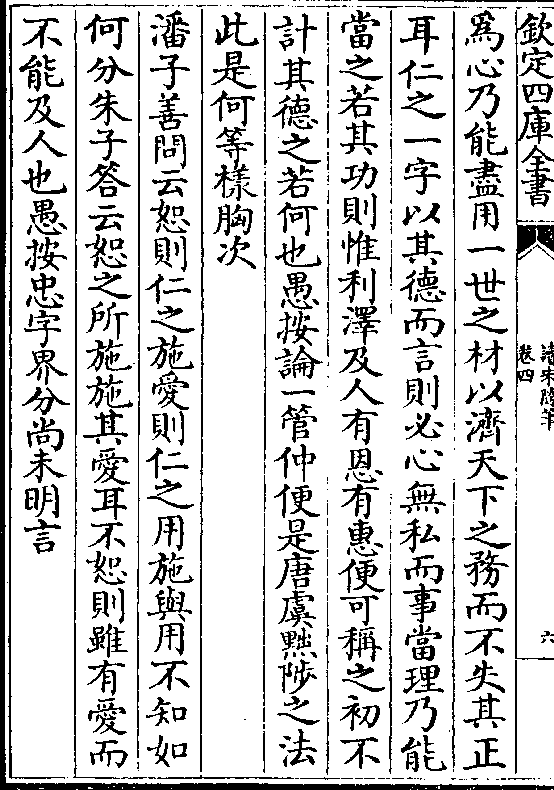 欽定四庫全書
卷四
六
爲心乃能盡用一世之材以濟天下之務而不失其正
耳仁之一字以其德而言則必心無私而事當理乃能
當之若其功則惟利澤及人有恩有惠便可稱之初不
計其德之若何也愚按論一管仲便是唐虞黜陟之法
此是何等樣胸次
潘子善問云恕則仁之施愛則仁之用施與用不知如
何分朱子答云恕之所施施其愛耳不恕則雖有愛而
不能及人也愚按忠字界分尚未明言